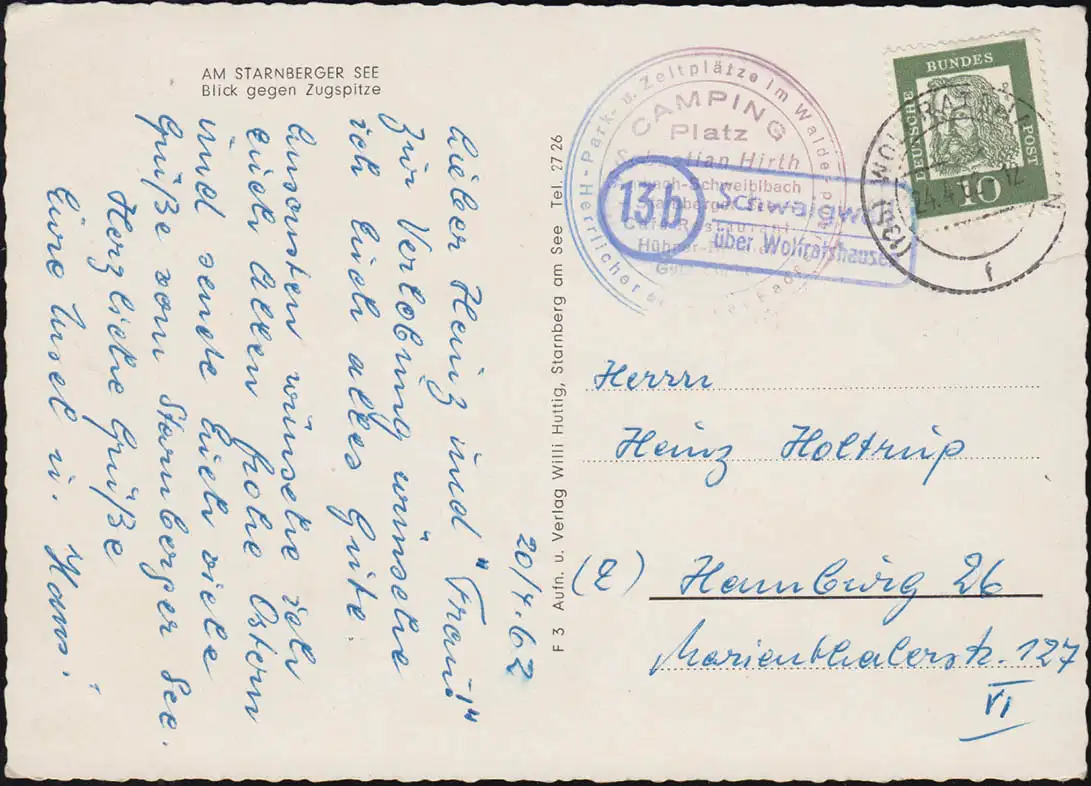 AM STARNBERGER SEE
Blick gegen Zugspitze
20/4.62
Lieber Heinz und "Frau!"
Zur Verlobung wünsche
ich Euch alles Gute.
Ansonsten wünsche ich
Euch allen frohe Ostern
und sende Euch viele
Grüße vom Starnberger See.
Herzliche Grüße
Eure Ursel u. Hans.
F 3 Aufn. u. Verlag Willi Huttig, Starnberg am See Tel. 27 26
Herrlicher Park- u. Zeltplätze im Walde
CAMPING
Platz
Hirth
13b
über Wolfratshausen
DEUTSCHE BUNDES POST
10
24.4.62
f
Herrn
Heinz Holtrup
(Z) Hamburg 26
Marienthalerstr. 127
VI